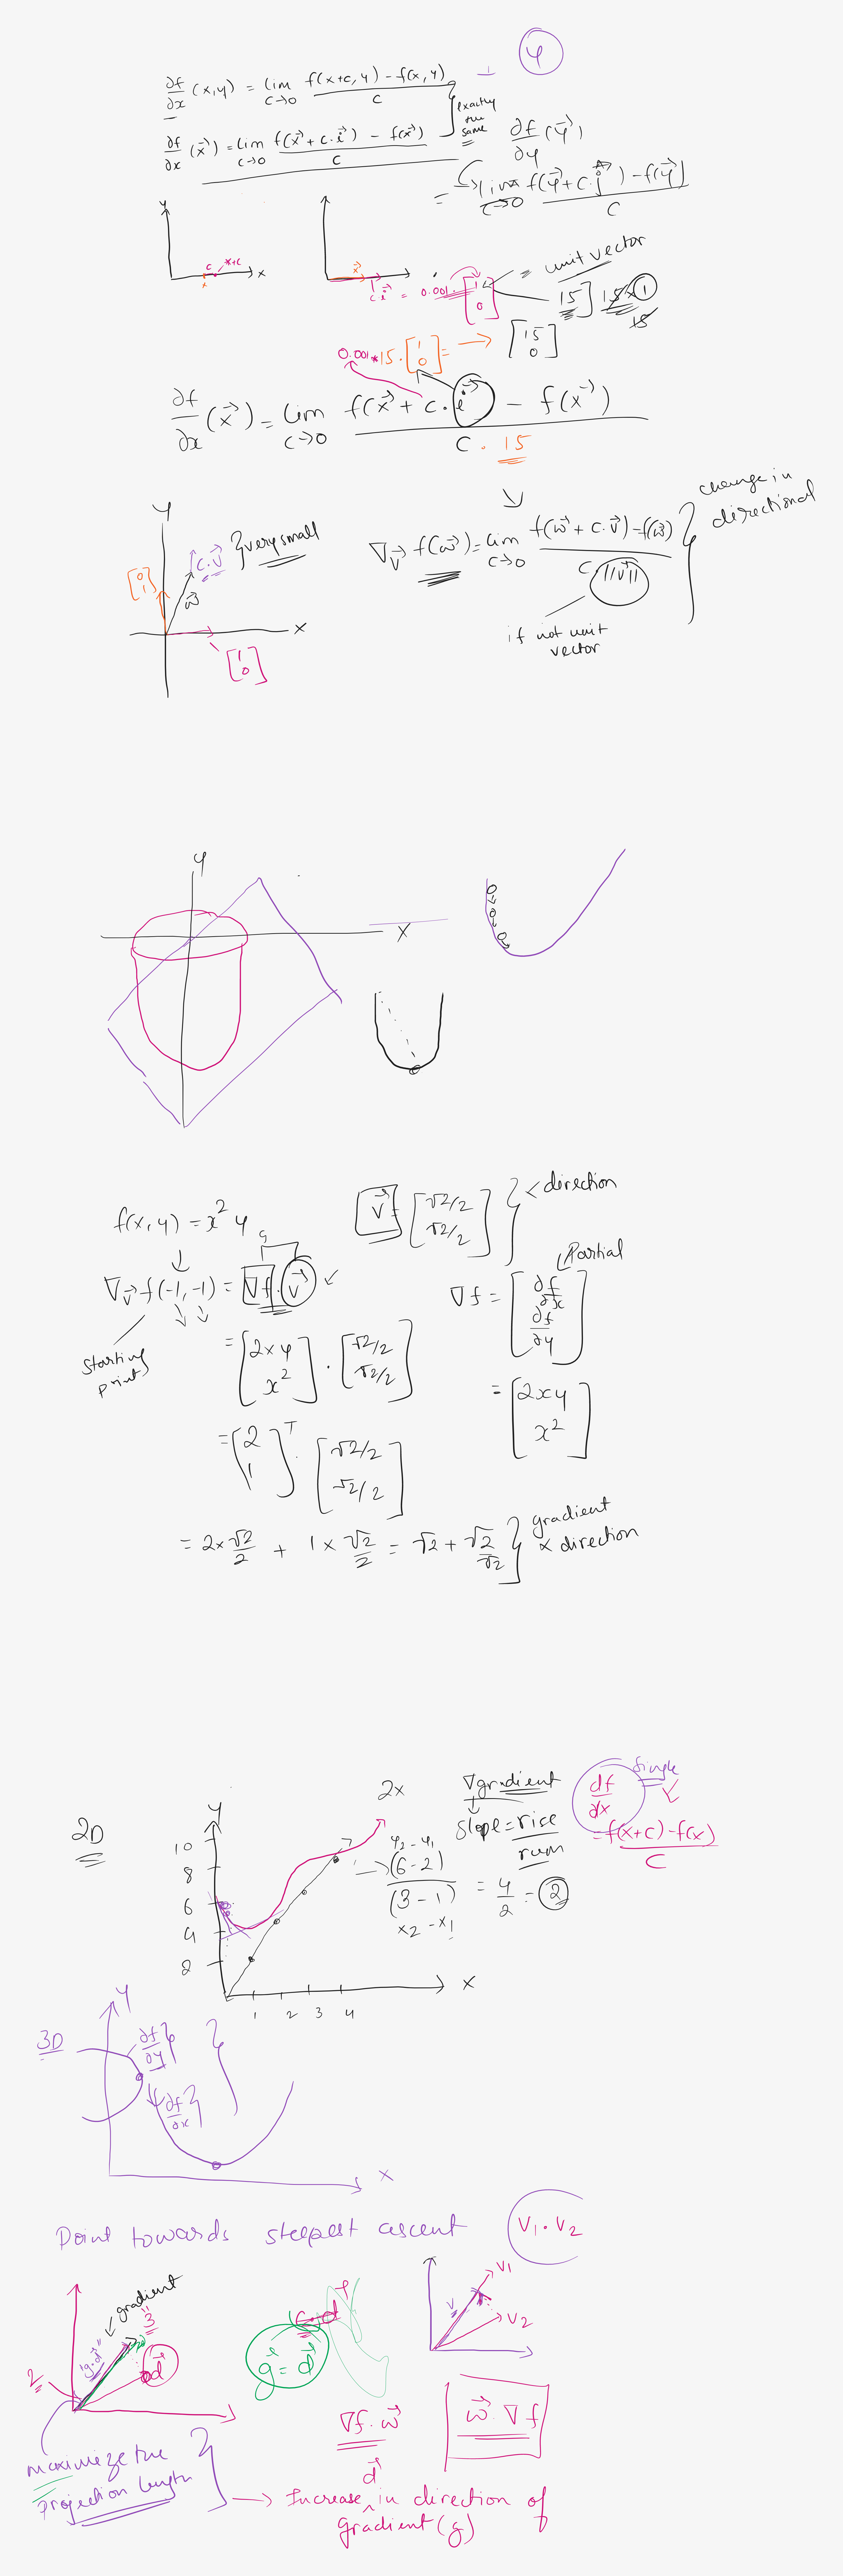 y
∂f/∂x (x,y) = lim c→0 f(x+c,y) - f(x,y) / c
exactly the same
∂f/∂x (x⃗) = lim c→0 f(x⃗ + c·i⃗) - f(x⃗) / c
∂f/∂y (y⃗)
= lim c→0 f(y⃗ + c·j⃗) - f(y⃗) / c
y
c x+c
x
x⃗
c·i⃗ = 0.001 · [1 0]
= unit vector
15] 15×1
15
0.001 * 15 · [1 0] = → [15 0]
∂f/∂x (x⃗) = lim c→0 f(x⃗ + c·i⃗) - f(x⃗) / c · 15
y
c·v⃗ } very small
[0 1]
w⃗
x
[1 0]
∇v⃗ f(w⃗) = lim c→0 f(w⃗ + c·v⃗) - f(w⃗) / c ||v⃗||
change in directional
if not unit vector
y
x
f(x,y) = x² y
v⃗ = [√2/2 √2/2] } ← direction
∇v⃗ f(-1,-1) = ∇f · v⃗
starting point
Partial
∇f = [∂f/∂x ∂f/∂y]
= [2xy x²] · [√2/2 √2/2]
= [2xy x²]
= [2 1]ᵀ · [√2/2 √2/2]
= 2×√2/2 + 1×√2/2 = √2 + √2/√2 } gradient × direction
2D
y
10
8
6
4
2
1 2 3 4
x
2x
∇gradient
slope = rise/run
y₂ - y₁
→ (6-2)/(3-1) = 4/2 = 2
x₂ - x₁
df/dx
single
= f(x+c) - f(x) / c
3D
y
∂f/∂y
∂f/∂x
x
Point towards steepest ascent
V₁ · V₂
gradient
3
"g·d⃗"
d⃗
2
g⃗ = d⃗
V₁
V
V₂
∇f · w⃗
w⃗ · ∇f
d⃗
maximize the projection length
→ Increase in direction of
gradient (g)